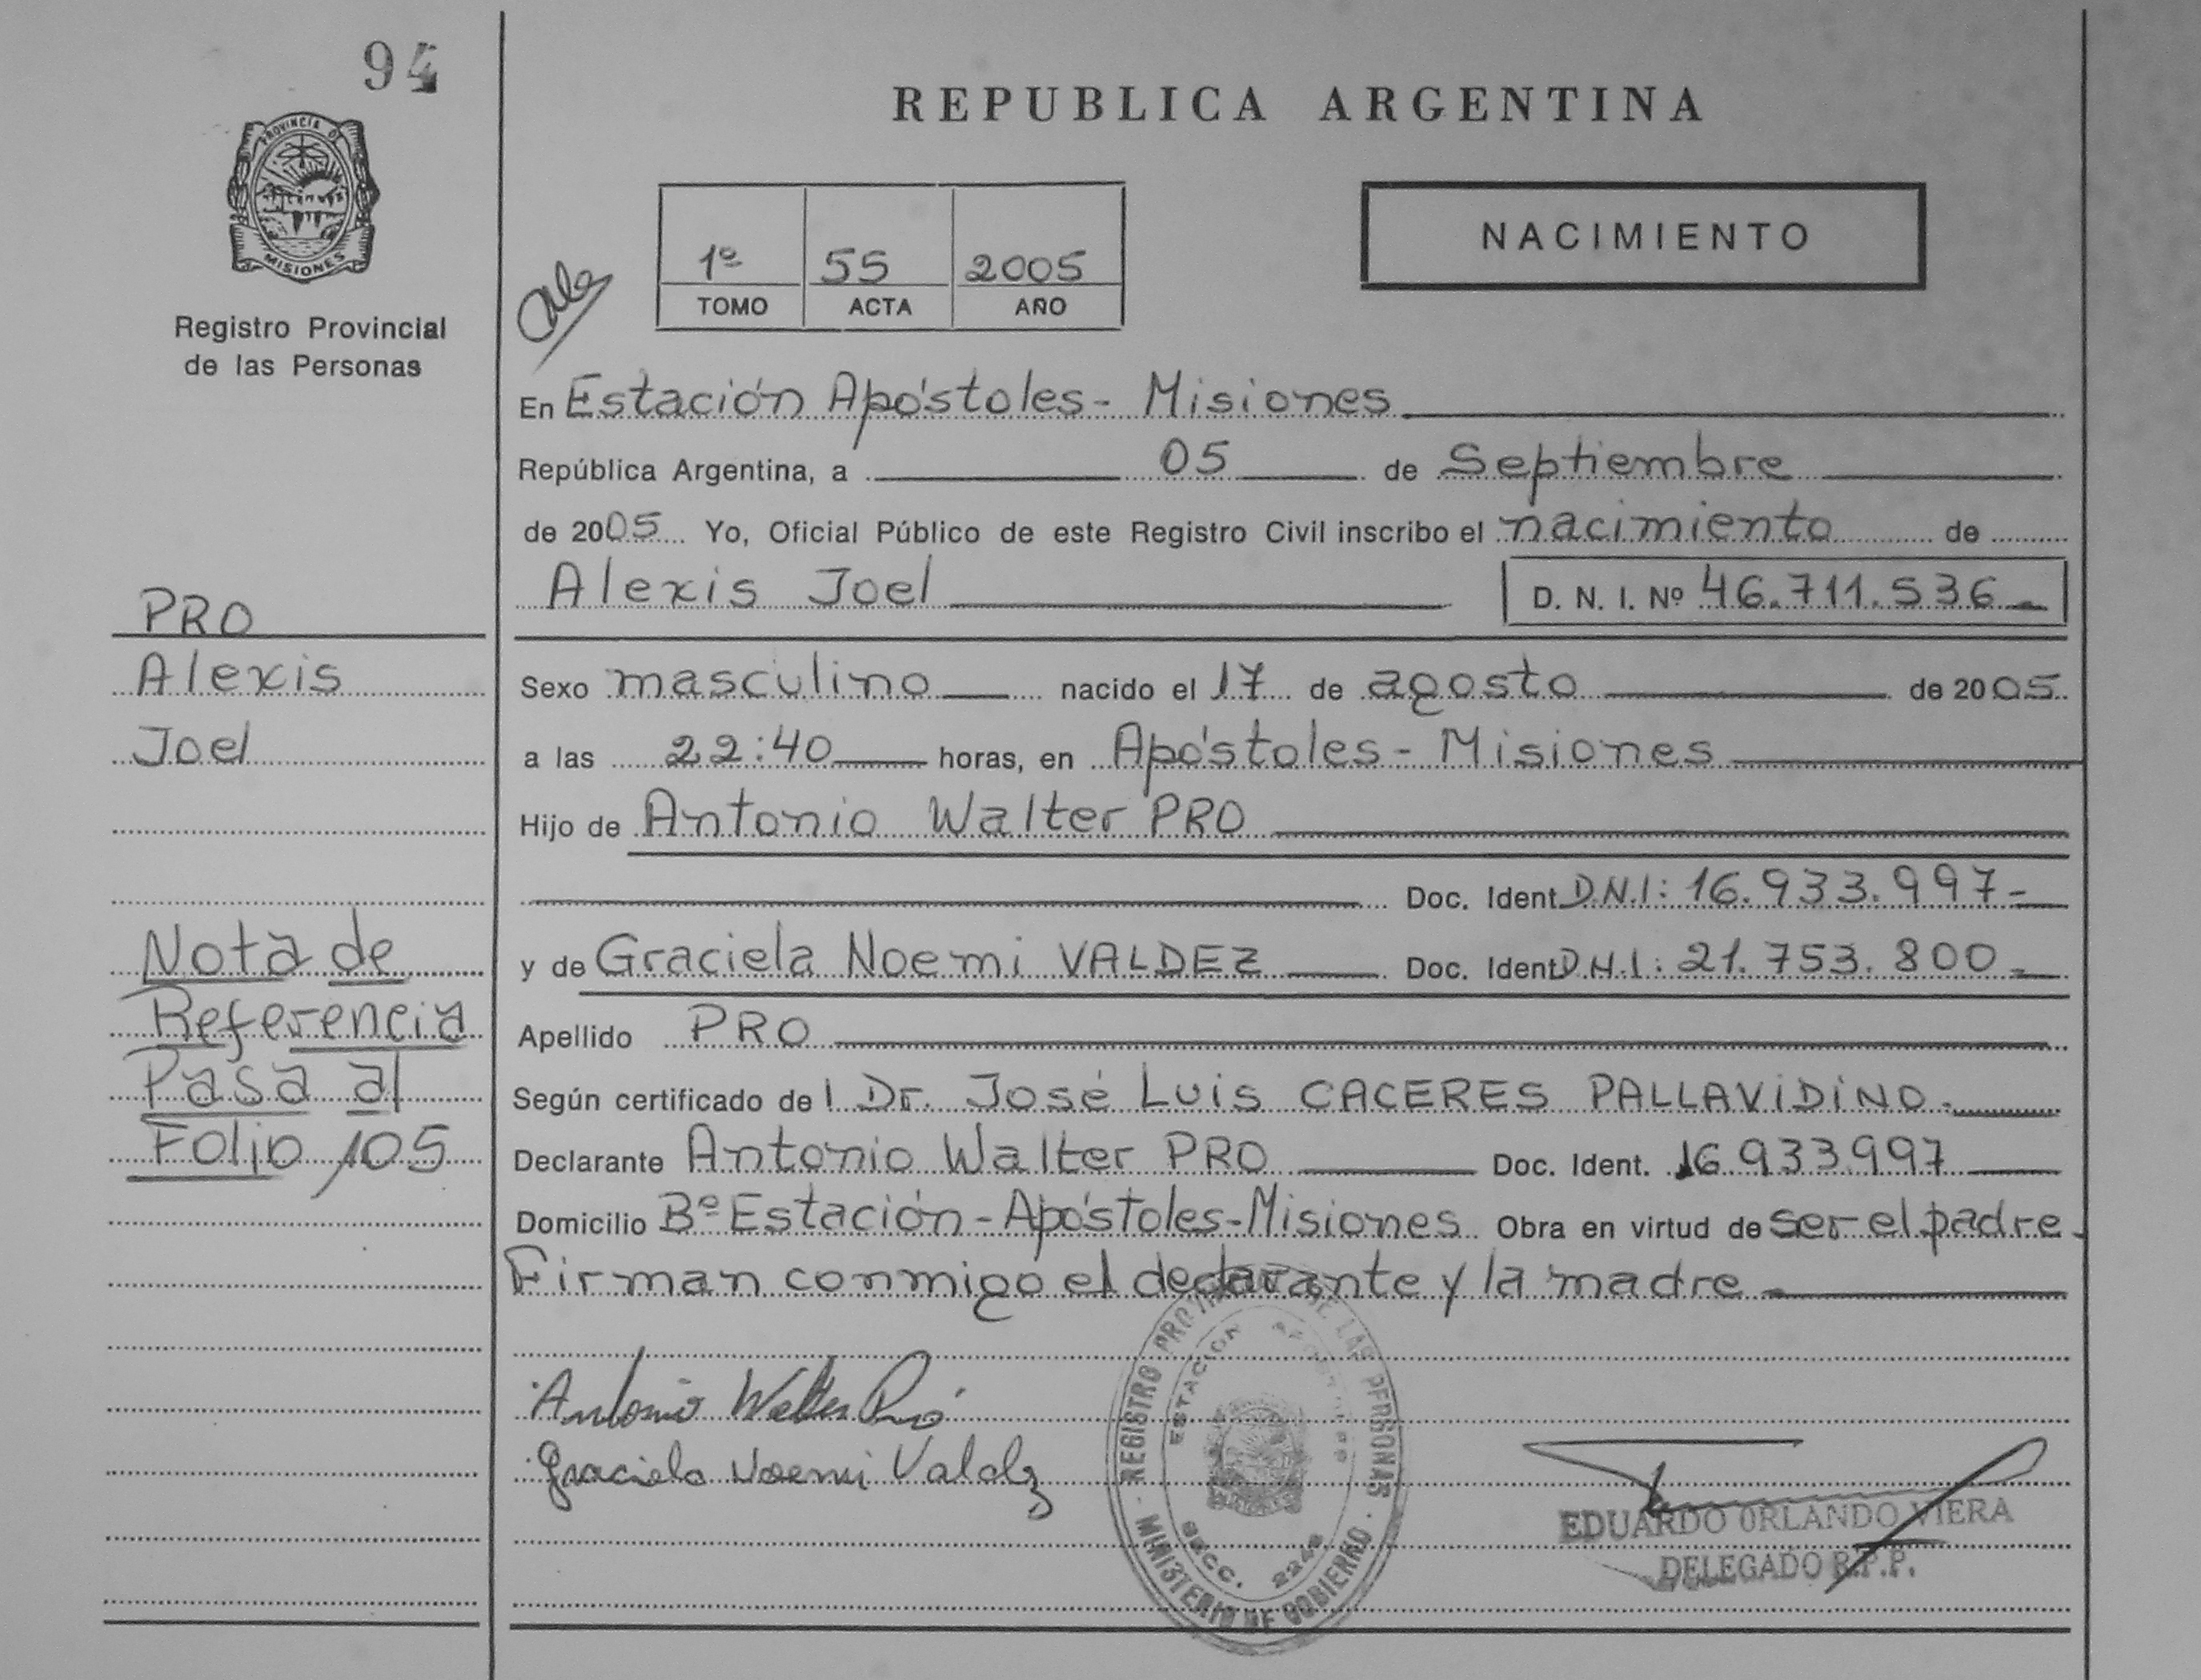 94
PROVINCIA DE
MISIONES
Registro Provincial
de las Personas
PRO
Alexis
Joel
Nota de
Referencia
Pasa al
Folio 105
REPUBLICA ARGENTINA
1º 55 2005
TOMO ACTA AÑO
NACIMIENTO
En Estación Apóstoles - Misiones
República Argentina, a 05 de Septiembre
de 2005 Yo, Oficial Público de este Registro Civil inscribo el nacimiento de
Alexis Joel D. N. I. Nº 46.711.536
Sexo masculino nacido el 17 de agosto de 2005
a las 22:40 horas, en Apóstoles - Misiones
Hijo de Antonio Walter PRO
Doc. Ident D.N.I: 16.933.997-
y de Graciela Noemi VALDEZ Doc. Ident D.N.I: 21.753.800-
Apellido PRO
Según certificado del Dr. José Luis CACERES PALLAVIDINO.
Declarante Antonio Walter PRO Doc. Ident. 16.933.997
Domicilio Bº Estación - Apóstoles - Misiones Obra en virtud de ser el padre.
Firman conmigo el declarante y la madre.
Antonio Walter Pró
Graciela Noemi Valdez
REGISTRO PROVINCIAL DE LAS PERSONAS
ESTACION APOSTOLES
SECC. 2248
MINISTERIO DE GOBIERNO
EDUARDO ORLANDO VIERA
DELEGADO R.P.P.